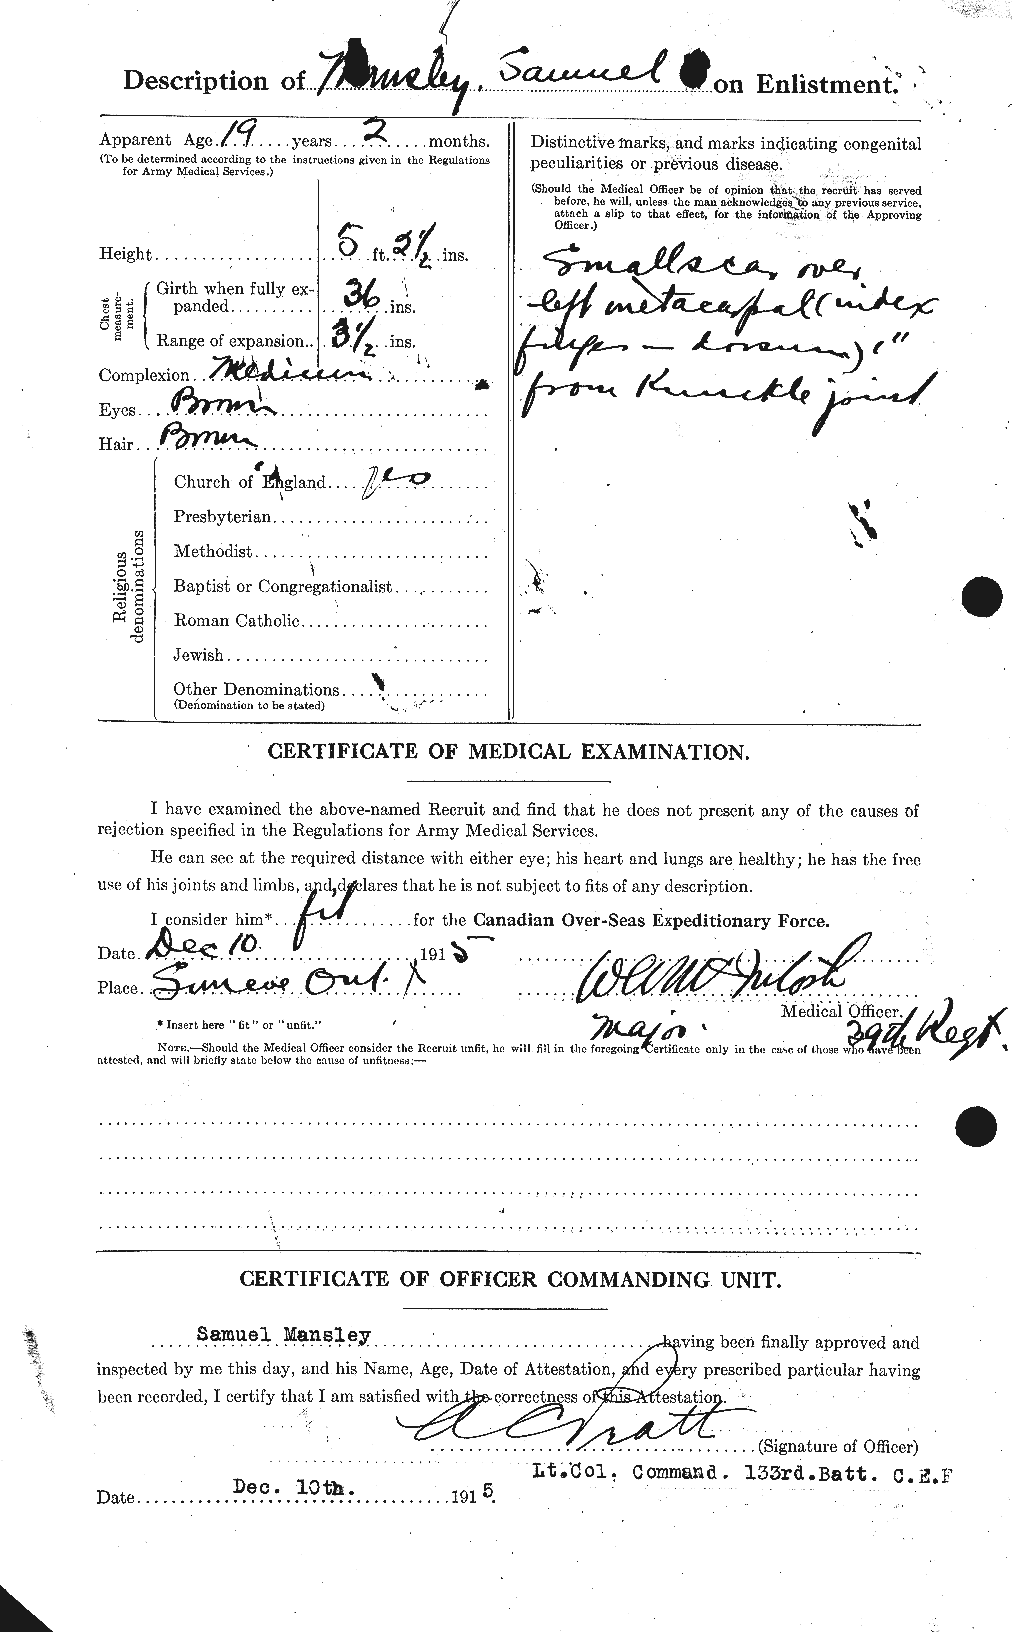 Description of Mansley, Samuel on Enlistment.
Apparent Age 19 years 2 months.
(To be determined according to the instructions given in the Regulations
for Army Medical Services.)
Height 5 ft. 2½ ins.
Chest measurement.
Girth when fully ex-
panded 36 ins.
Range of expansion 3½ ins.
Complexion Medium
Eyes Brown
Hair Brown
Religious denominations
Church of England yes
Presbyterian
Methodist
Baptist or Congregationalist
Roman Catholic
Jewish
Other Denominations
(Denomination to be stated)
Distinctive marks, and marks indicating congenital
peculiarities or previous disease.
(Should the Medical Officer be of opinion that the recruit has served
before, he will, unless the man acknowledges to any previous service,
attach a slip to that effect, for the information of the Approving
Officer.)
Small scar over
left metacarpal (index
finger — dorsum) 1"
from Knuckle joint
CERTIFICATE OF MEDICAL EXAMINATION.
I have examined the above-named Recruit and find that he does not present any of the causes of
rejection specified in the Regulations for Army Medical Services.
He can see at the required distance with either eye; his heart and lungs are healthy; he has the free
use of his joints and limbs, and declares that he is not subject to fits of any description.
I consider him* fit for the Canadian Over-Seas Expeditionary Force.
Date Dec 10 1915
Place Simcoe Ont.
W A McIntosh
Medical Officer.
Major 39th Regt.
* Insert here "fit" or "unfit."
NOTE.—Should the Medical Officer consider the Recruit unfit, he will fill in the foregoing Certificate only in the case of those who have been
attested, and will briefly state below the cause of unfitness:—
CERTIFICATE OF OFFICER COMMANDING UNIT.
Samuel Mansley having been finally approved and
inspected by me this day, and his Name, Age, Date of Attestation, and every prescribed particular having
been recorded, I certify that I am satisfied with the correctness of this Attestation.
A C Pratt
(Signature of Officer)
Lt.Col. Command. 133rd.Batt. C.E.F
Date Dec. 10th. 1915.